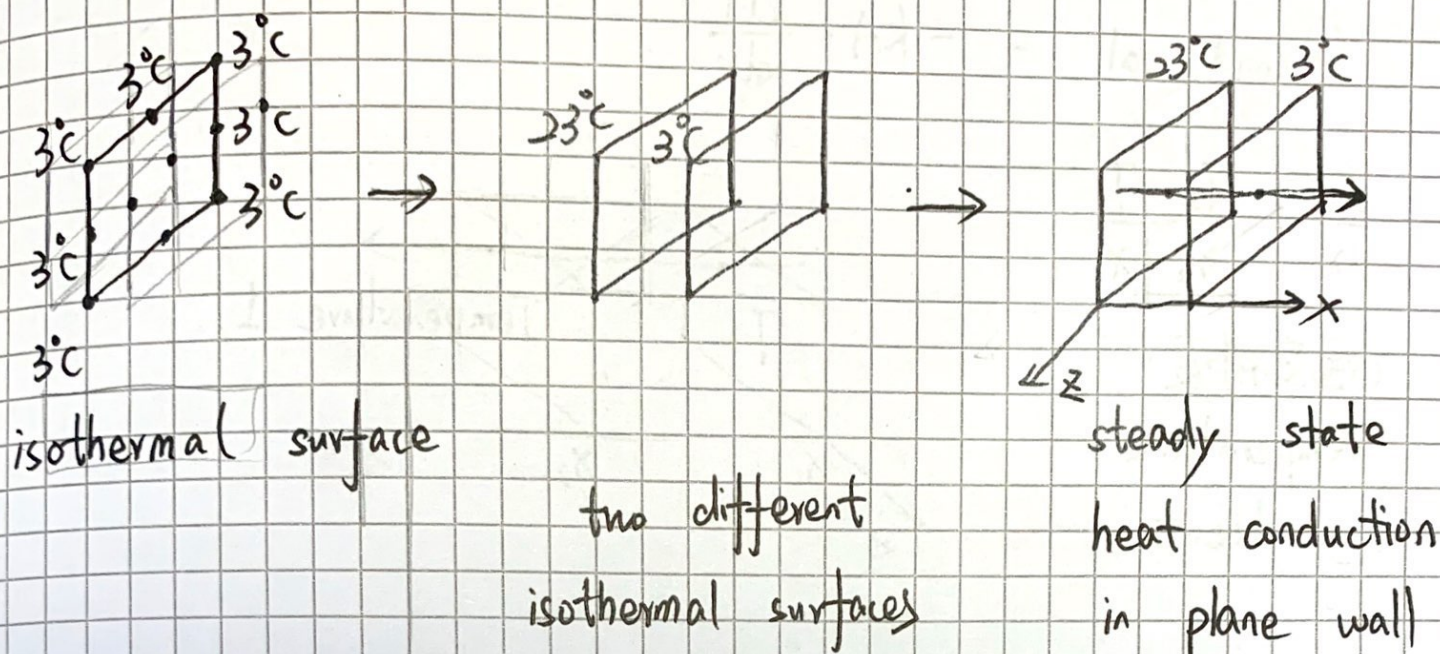 3°C
3°C
3°C
3°C
3°C
3°C
3°C
isothermal surface
23°C
3°C
two different
isothermal surfaces
23°C
3°C
X
Z
steady state
heat conduction
in plane wall